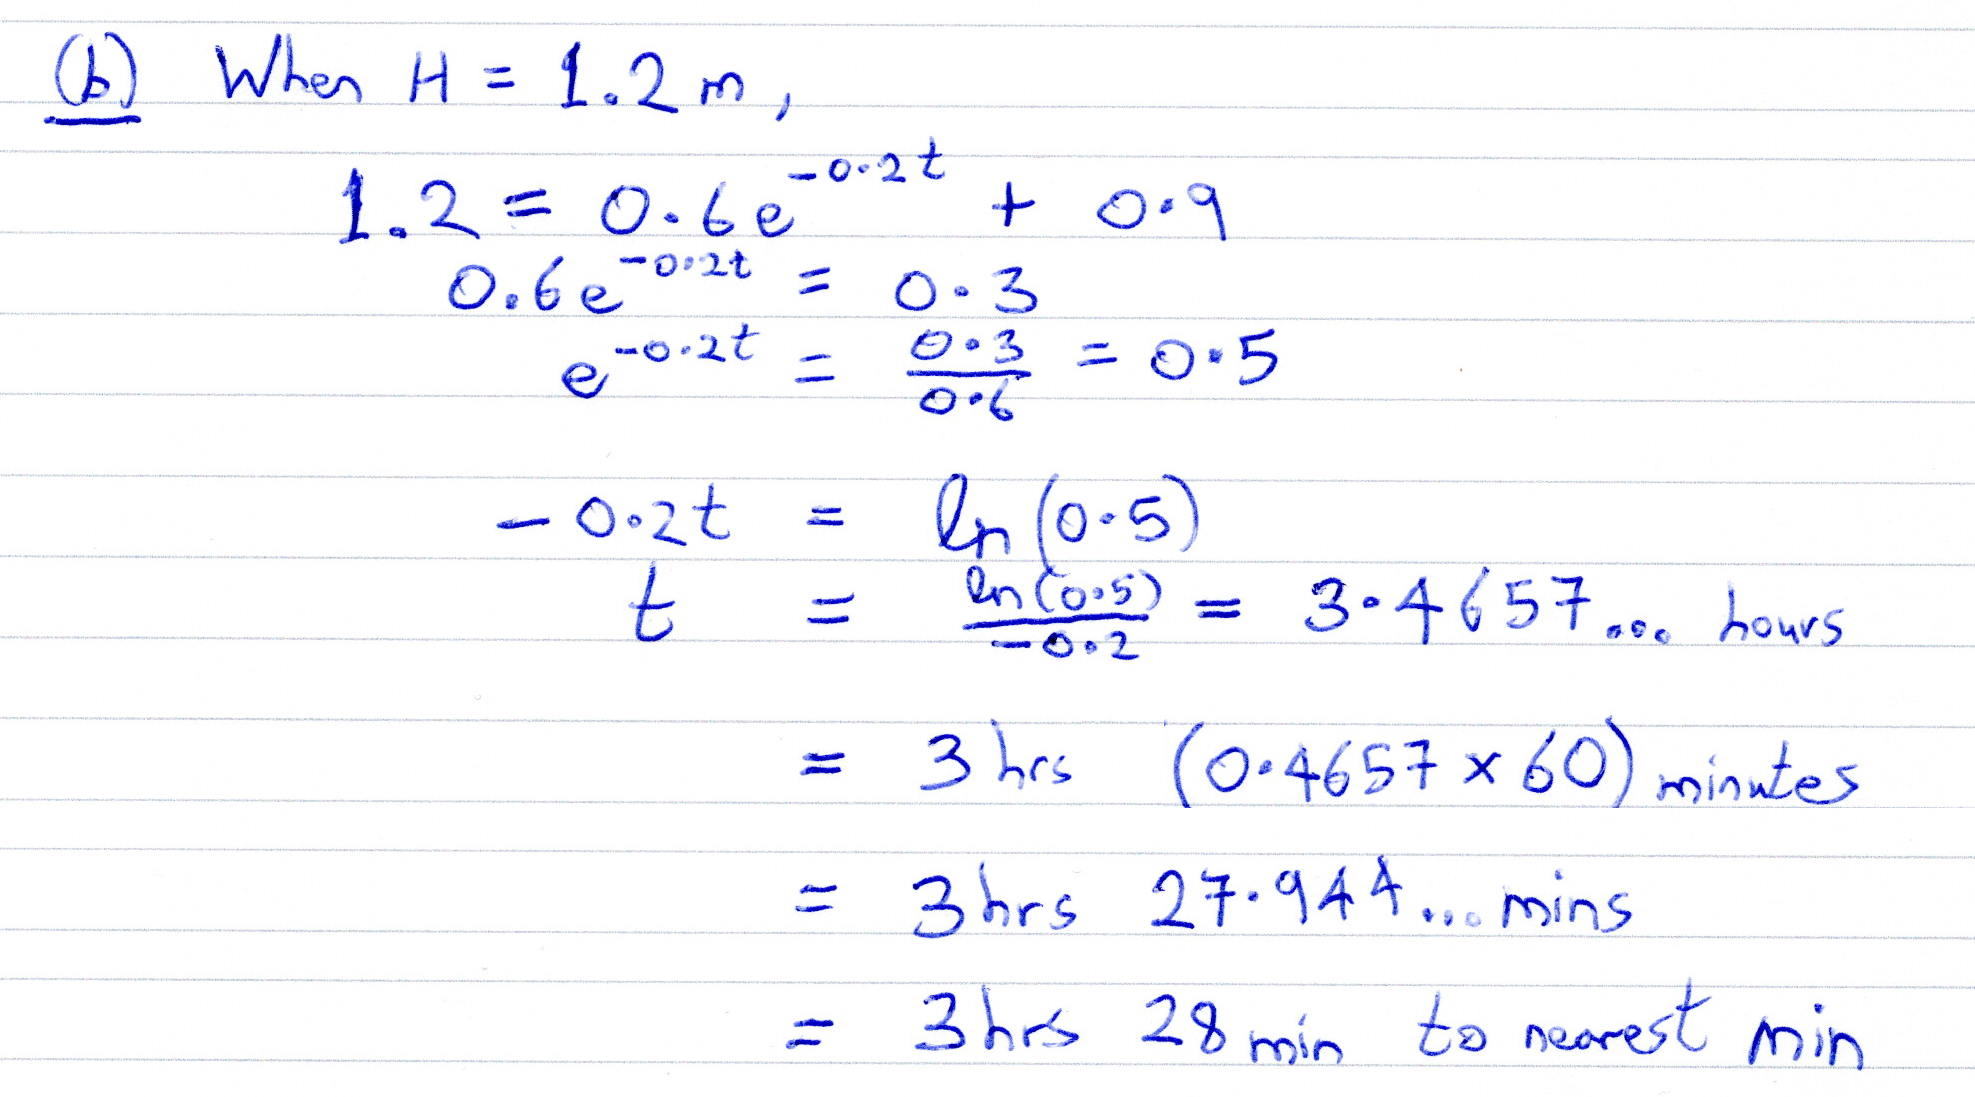 (b) When H = 1.2 m,
1.2 = 0.6e^{-0.2t} + 0.9
0.6e^{-0.2t} = 0.3
e^{-0.2t} = 0.3/0.6 = 0.5
-0.2t = ln(0.5)
t = ln(0.5)/-0.2 = 3.4657... hours
= 3 hrs (0.4657 × 60) minutes
= 3 hrs 27.944... mins
= 3 hrs 28 min to nearest min